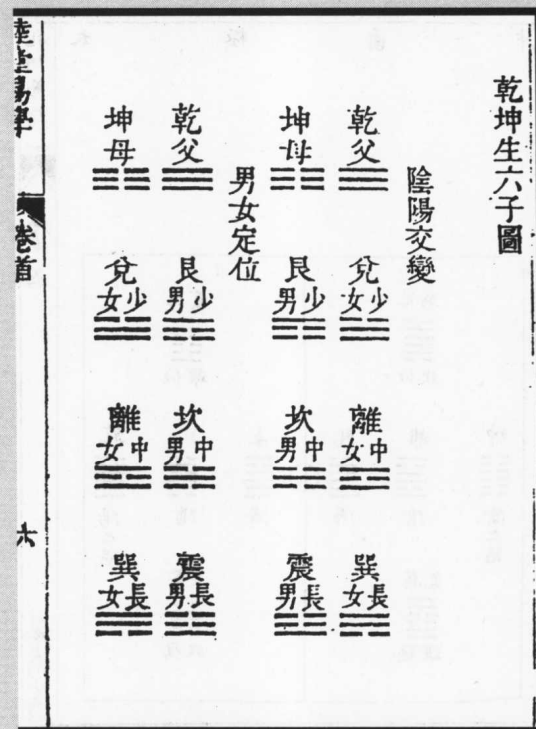 乾坤生六子圖
陰陽交變
乾父 兌少女 離中女 巽長女
坤母 艮少男 坎中男 震長男
男女定位
乾父 艮少男 坎中男 震長男
坤母 兌少女 離中女 巽長女
陸堂易學 卷首 六